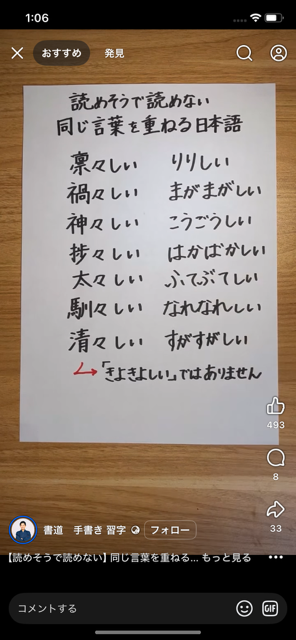 1:06
おすすめ 発見
読めそうで読めない
同じ言葉を重ねる日本語
凛々しい りりしい
禍々しい まがまがしい
神々しい こうごうしい
捗々しい はかばかしい
太々しい ふてぶてしい
馴々しい なれなれしい
清々しい すがすがしい
→「きよきよしい」ではありません
493
8
33
書道 手書き 習字 フォロー
【読めそうで読めない】同じ言葉を重ねる... もっと見る
コメントする GIF